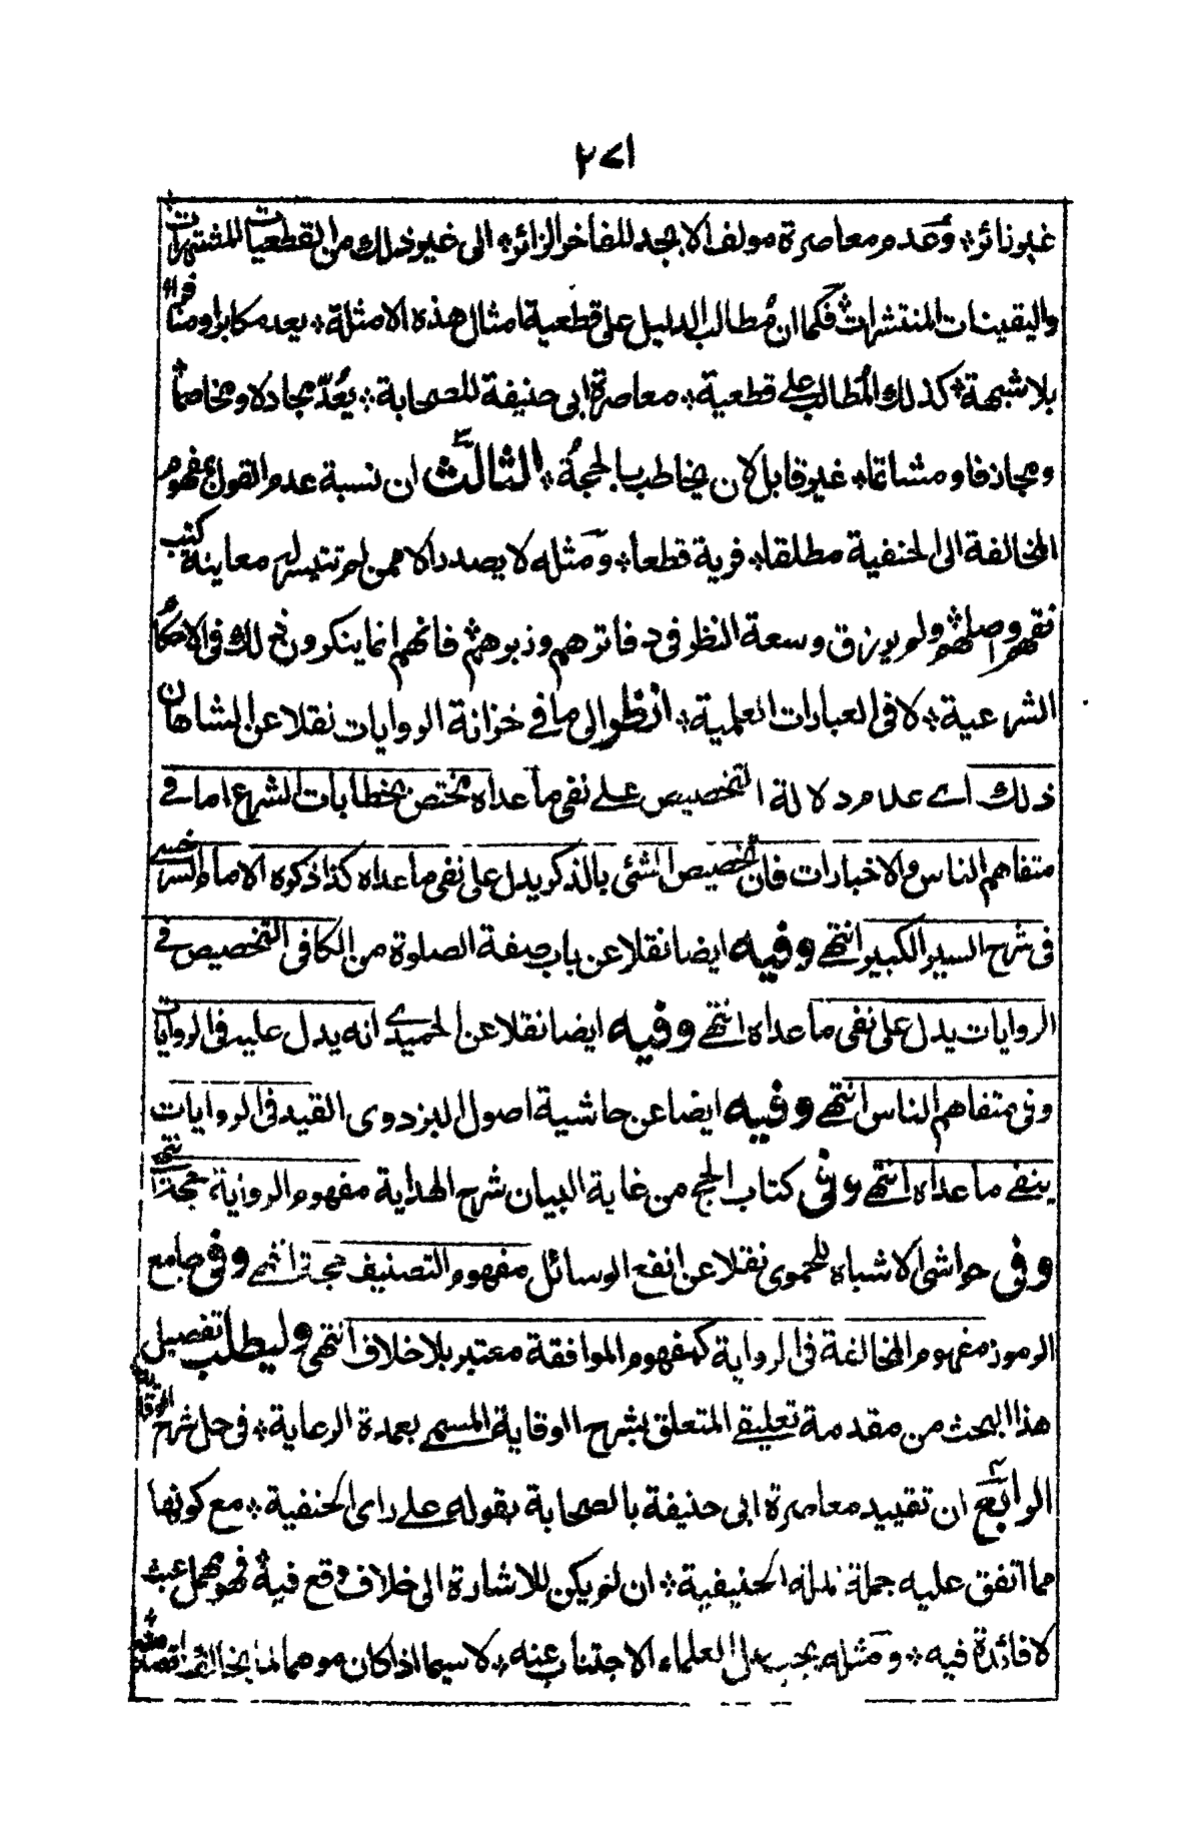 ٢٧١
غير نائر * وعدم معاصرة مولف الابجد للفاخر الزائر * الى غير ذلك من القطعيات المشتهرات
واليقينات المنتشرات * فكما ان مطالب الدليل على قطعية امثال هذه الامثلة * يعد مكابرا ومنافرا *
بلا شبهة * كذلك المطالب على قطعية * معاصرة ابى حنيفة للصحابة * يُعدّ مجادلا ومخاصما *
ومجازفا ومشاتما * غير قابل لان يخاطب بالحجة * الثالث ان نسبة عدم القول بمفهوم
المخالفة الى الحنفية مطلقا * فرية قطعا * ومثله لا يصدر الا ممن لم تتيسر له معاينة كتب
فقههم واصلهم * ولم يرزق وسعة النظر فى دفاترهم وزبرهم * فانهم انما ينكرون ذلك فى الاحكام
الشرعية * لا فى العبارات العلمية * انظر الى ما فى خزانة الروايات نقلا عن الشاهان
ذلك اى عدم دلالة التخصيص على نفى ما عداه مختص بخطابات الشرع اما فى
متفاهم الناس والاخبارات فان تخصيص الشئى بالذكر يدل على نفى ما عداه كذا ذكره الامام السرخسى
فى شرح السير الكبير انتهى وفيه ايضا نقلا عن باب صفة الصلوة من الكافى التخصيص فى
الروايات يدل على نفى ما عداه انتهى وفيه ايضا نقلا عن الحميدى انه يدل عليه فى الروايات
وفى متفاهم الناس انتهى وفيه ايضا عن حاشية اصول البزدوى القيد فى الروايات
ينفى ما عداه انتهى وفى كتاب الحج من غاية البيان شرح الهداية مفهوم الرواية حجة انتهى
وفى حواشى الاشباه للحموى نقلا عن انفع الوسائل مفهوم التصنيف حجة انتهى وفى جامع
الرموز مفهوم المخالفة فى الرواية كمفهوم الموافقة معتبر بلا خلاف انتهى وليطلب تفصيل
هذا البحث من مقدمة تعليقى المتعلق بشرح الوقاية المسمى بعمدة الرعاية * فى حل شرح الوقاية
الرابع ان تقييد معاصرة ابى حنيفة بالصحابة بقوله على راى الحنفية * مع كونها
مما اتفق عليه جملة الحنيفية * ان لم يكن للاشارة الى خلاف وقع فيه * فهو مهمل عبث
لا فائدة فيه * ومثله يجب العلماء الاجتناب عنه * لا سيما اذا كان موهما لما يخالف